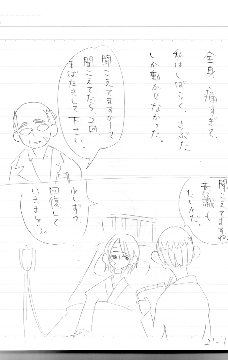 全身が痛すぎて、
私はしばらく、まぶた
しか動かせなかった。
聞こえてますかー?
聞こえてたら2回
まばたきして下さい。
聞こえてますね
意識も
たしかだ。
少しずつ
回復して
いきますよ。